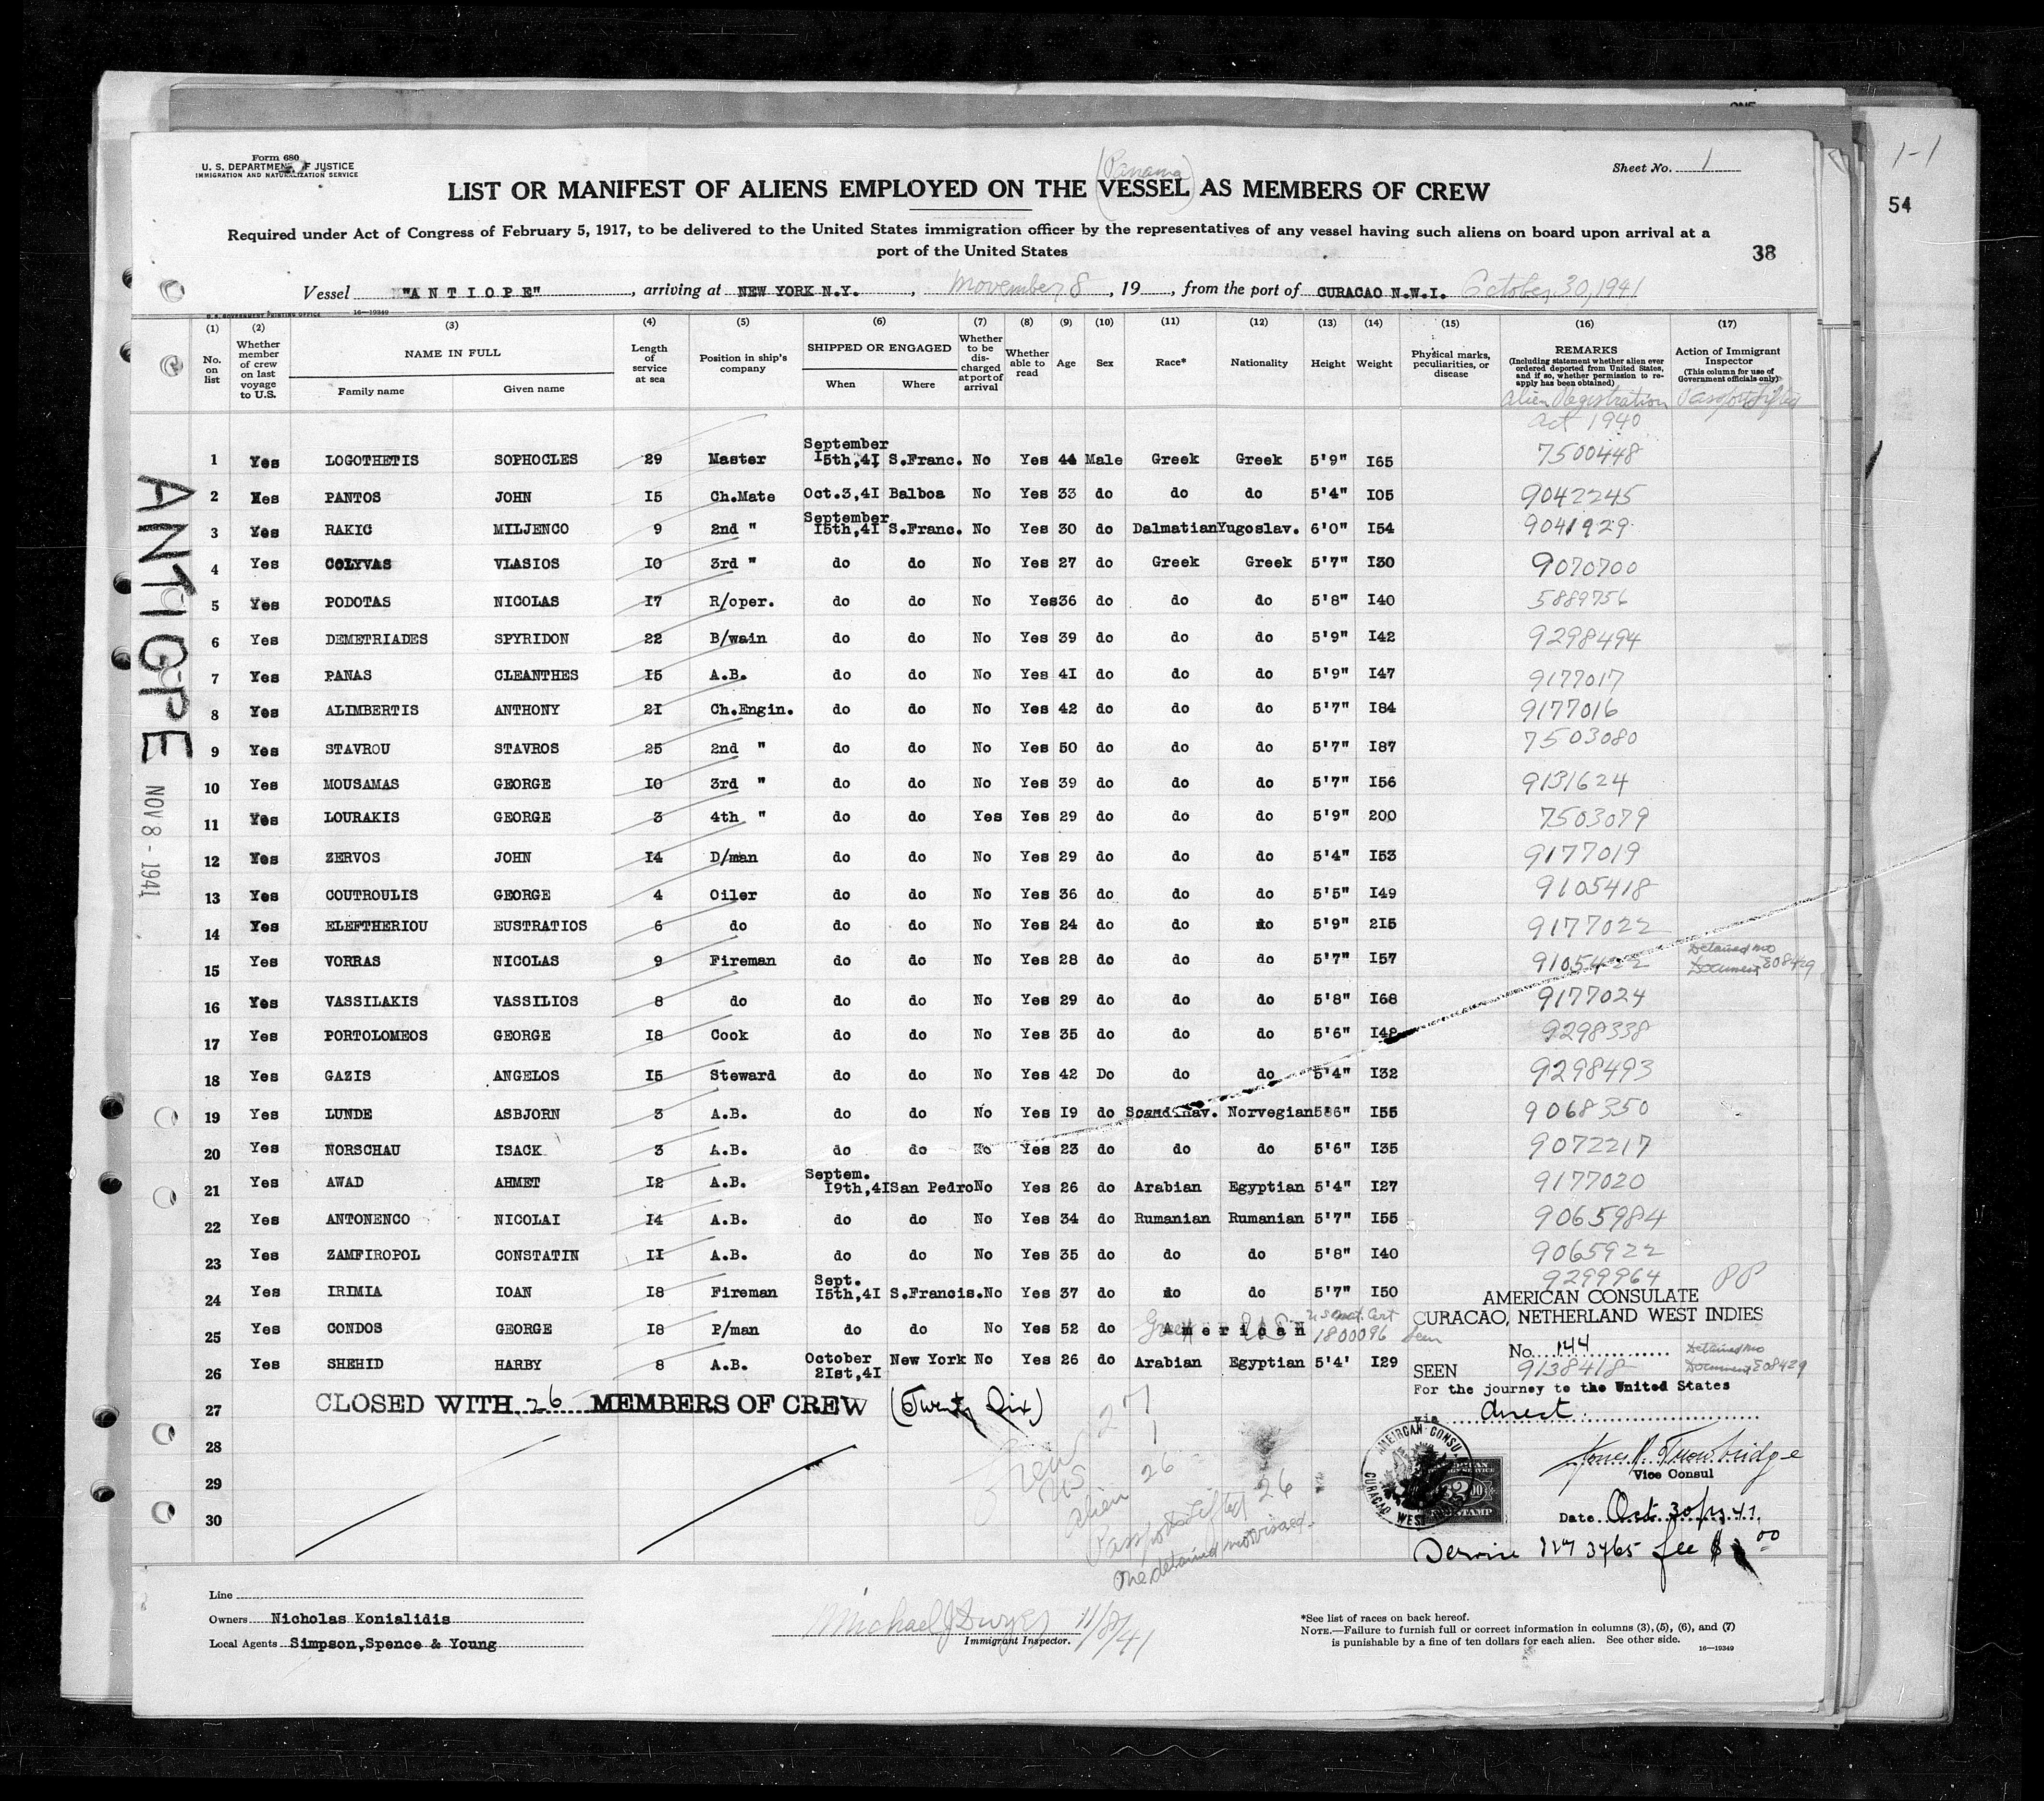 ONE
Form 680
U. S. DEPARTMENT OF JUSTICE
IMMIGRATION AND NATURALIZATION SERVICE
(Panama)
Sheet No. 1
1-1
LIST OR MANIFEST OF ALIENS EMPLOYED ON THE VESSEL AS MEMBERS OF CREW
54
Required under Act of Congress of February 5, 1917, to be delivered to the United States immigration officer by the representatives of any vessel having such aliens on board upon arrival at a
port of the United States
38
Vessel "ANTIOPE", arriving at NEW YORK N.Y., November 8, 19, from the port of CURACAO N.W.I. October 30, 1941
U. S. GOVERNMENT PRINTING OFFICE 16—19349
(1) (2) (3) (4) (5) (6) (7) (8) (9) (10) (11) (12) (13) (14) (15) (16) (17)
No. on list
Whether member of crew on last voyage to U.S.
NAME IN FULL
Family name Given name
Length of service at sea
Position in ship's company
SHIPPED OR ENGAGED
When Where
Whether to be discharged at port of arrival
Whether able to read
Age
Sex
Race*
Nationality
Height
Weight
Physical marks, peculiarities, or disease
REMARKS
(Including statement whether alien ever ordered deported from United States, and if so, whether permission to reapply has been obtained)
Action of Immigrant Inspector
(This column for use of Government officials only)
Alien Registration Passport Lifted
Act 1940
1 Yes LOGOTHETIS SOPHOCLES 29 Master September 15th,41 S.Franc. No Yes 44 Male Greek Greek 5'9" 165 7500448
2 Yes PANTOS JOHN 15 Ch.Mate Oct.3,41 Balboa No Yes 33 do do do 5'4" 105 9042245
3 Yes RAKIC MILJENCO 9 2nd " September 15th,41 S.Franc. No Yes 30 do Dalmatian Yugoslav. 6'0" 154 9041929
4 Yes COLYVAS VLASIOS 10 3rd " do do No Yes 27 do Greek Greek 5'7" 130 9070700
5 Yes PODOTAS NICOLAS 17 R/oper. do do No Yes 36 do do do 5'8" 140 5889756
6 Yes DEMETRIADES SPYRIDON 22 B/wain do do No Yes 39 do do do 5'9" 142 9298494
7 Yes PANAS CLEANTHES 15 A.B. do do No Yes 41 do do do 5'9" 147 9177017
8 Yes ALIMBERTIS ANTHONY 21 Ch.Engin. do do No Yes 42 do do do 5'7" 184 9177016
9 Yes STAVROU STAVROS 25 2nd " do do No Yes 50 do do do 5'7" 187 7503080
10 Yes MOUSAMAS GEORGE 10 3rd " do do No Yes 39 do do do 5'7" 156 9131624
11 Yes LOURAKIS GEORGE 3 4th " do do Yes Yes 29 do do do 5'9" 200 7503079
12 Yes ZERVOS JOHN 14 D/man do do No Yes 29 do do do 5'4" 153 9177019
13 Yes COUTROULIS GEORGE 4 Oiler do do No Yes 36 do do do 5'5" 149 9105418
14 Yes ELEFTHERIOU EUSTRATIOS 6 do do do No Yes 24 do do do 5'9" 215 9177022
15 Yes VORRAS NICOLAS 9 Fireman do do No Yes 28 do do do 5'7" 157 9105422 Detained no Document E08429
16 Yes VASSILAKIS VASSILIOS 8 do do do No Yes 29 do do do 5'8" 168 9177024
17 Yes PORTOLOMEOS GEORGE 18 Cook do do No Yes 35 do do do 5'6" 148 9298338
18 Yes GAZIS ANGELOS 15 Steward do do No Yes 42 Do do do 5'4" 132 9298493
19 Yes LUNDE ASBJORN 3 A.B. do do No Yes 19 do Scandinav. Norwegian 5'6" 155 9068350
20 Yes NORSCHAU ISACK 3 A.B. do do No Yes 23 do do do 5'6" 135 9072217
21 Yes AWAD AHMET 12 A.B. Septem. 19th,41 San Pedro No Yes 26 do Arabian Egyptian 5'4" 127 9177020
22 Yes ANTONENCO NICOLAI 14 A.B. do do No Yes 34 do Rumanian Rumanian 5'7" 155 9065984
23 Yes ZAMFIROPOL CONSTATIN 11 A.B. do do No Yes 35 do do do 5'8" 140 9065922
24 Yes IRIMIA IOAN 18 Fireman Sept. 15th,41 S.Francis. No Yes 37 do do do 5'7" 150 9299964 PP
25 Yes CONDOS GEORGE 18 P/man do do No Yes 52 do American U S Nat. Cert 1800096 seen
26 Yes SHEHID HARBY 8 A.B. October 21st,41 New York No Yes 26 do Arabian Egyptian 5'4' 129 9138418 Detained no Document E08429
AMERICAN CONSULATE
CURACAO, NETHERLAND WEST INDIES
No. 144
SEEN
For the journey to the United States
via direct
27 CLOSED WITH 26 MEMBERS OF CREW (Twenty Six)
28
29
30
Crew 27
US 1
Alien 26
Passports Lifted 26
One detained not visaed
AMERICAN CONSU
CURACAO WEST
$2.00
STAMP
Vice Consul
Date Oct 30/1941
Service No 3465 fee $ 00
ANTIOPE
NOV 8 - 1941
Line
Owners Nicholas Konialidis
Local Agents Simpson,Spence & Young
Michael J Dwyer 11/8/41
Immigrant Inspector.
*See list of races on back hereof.
NOTE.—Failure to furnish full or correct information in columns (3), (5), (6), and (7)
is punishable by a fine of ten dollars for each alien. See other side.
16—19349